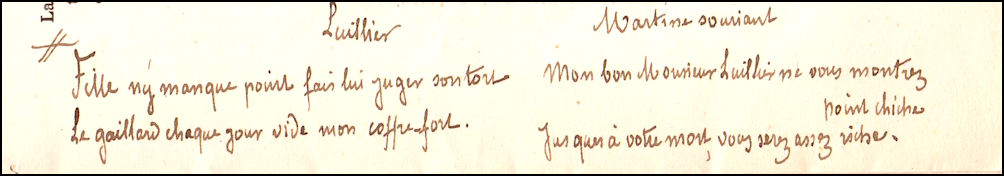 La
Luillier
Fille n'y manque point fais lui juger son tort
Le gaillard chaque jour vide mon coffre-fort.
Martine souriant
Mon bon Monsieur Luillier ne vous montrez
point chiche
Jusques à votre mort, vous serez assez riche.